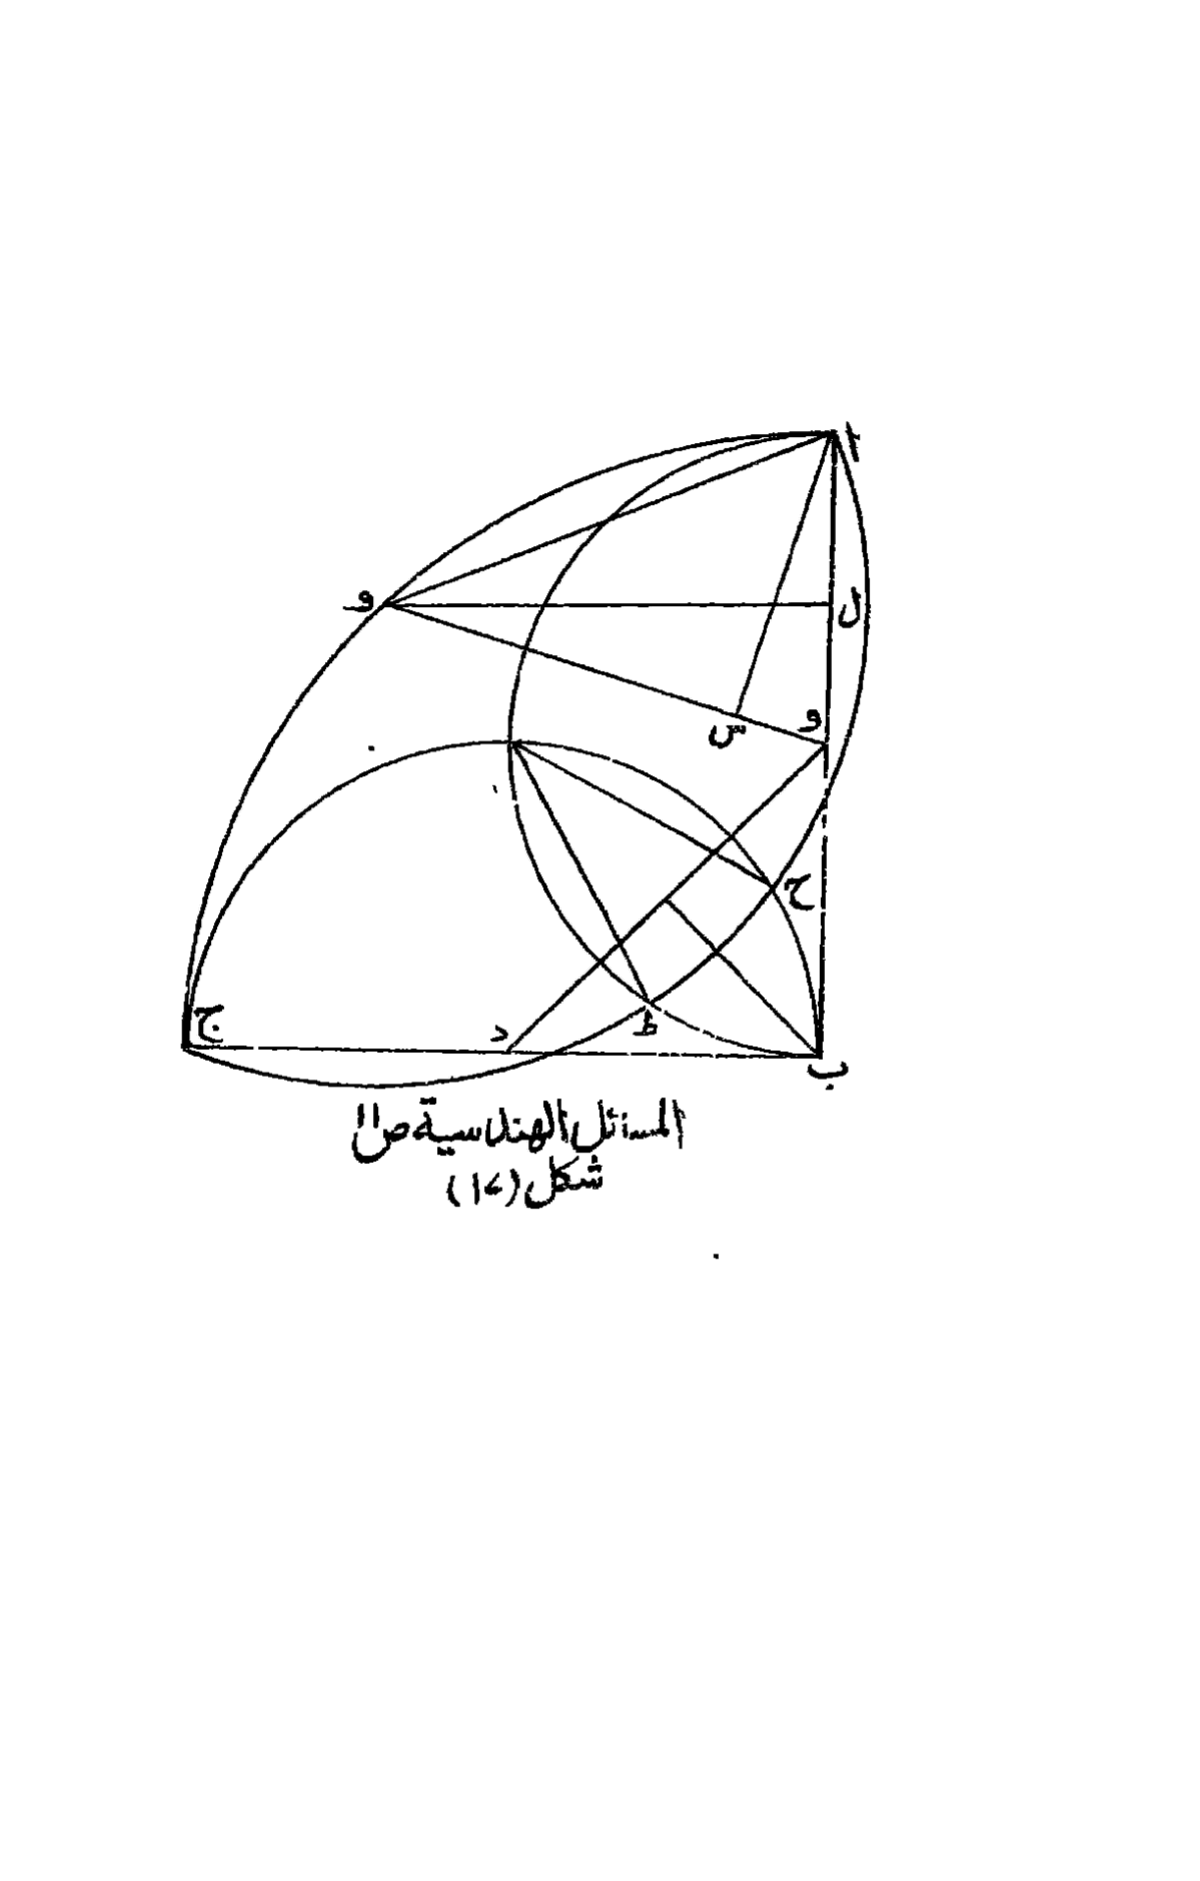 ا
و
ل
و
س
ح
ج
د
ط
ب
المسائل الهندسية ص١١
شكل (١٤)